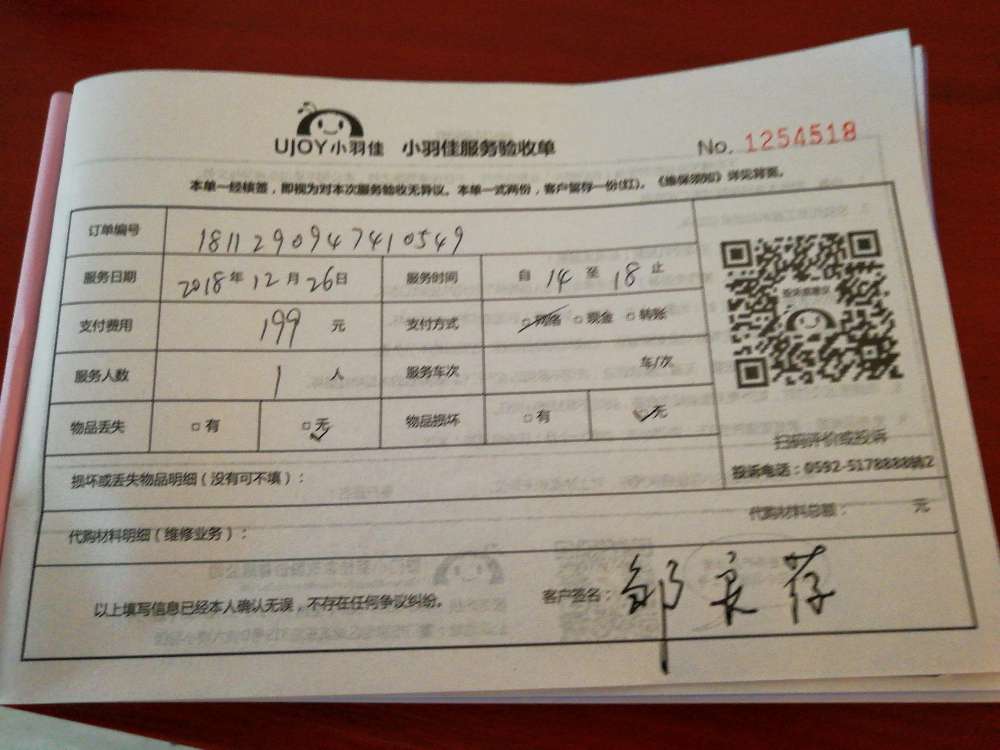 UJOY小羽佳 小羽佳服务验收单 No. 1254518
本单一经核签，即视为对本次服务验收无异议。本单一式两份，客户暂存一份(红)。《维保须知》详见背面。
订单编号 181129094741054​9
服务日期 2018年12月26日 服务时间 自14至18止
支付费用 199 元 支付方式 □网络 □现金 □转账
服务人数 1 人 服务车次 车/次
物品丢失 □有 □无 物品损坏 □有 □无
扫码评价或投诉
投诉电话：0592-5178888转2
损坏或丢失物品明细（没有可不填）：
代购材料明细（维修业务）： 代购材料总额： 元
以上填写信息已经本人确认无误，不存在任何争议纠纷。 客户签名：邹良